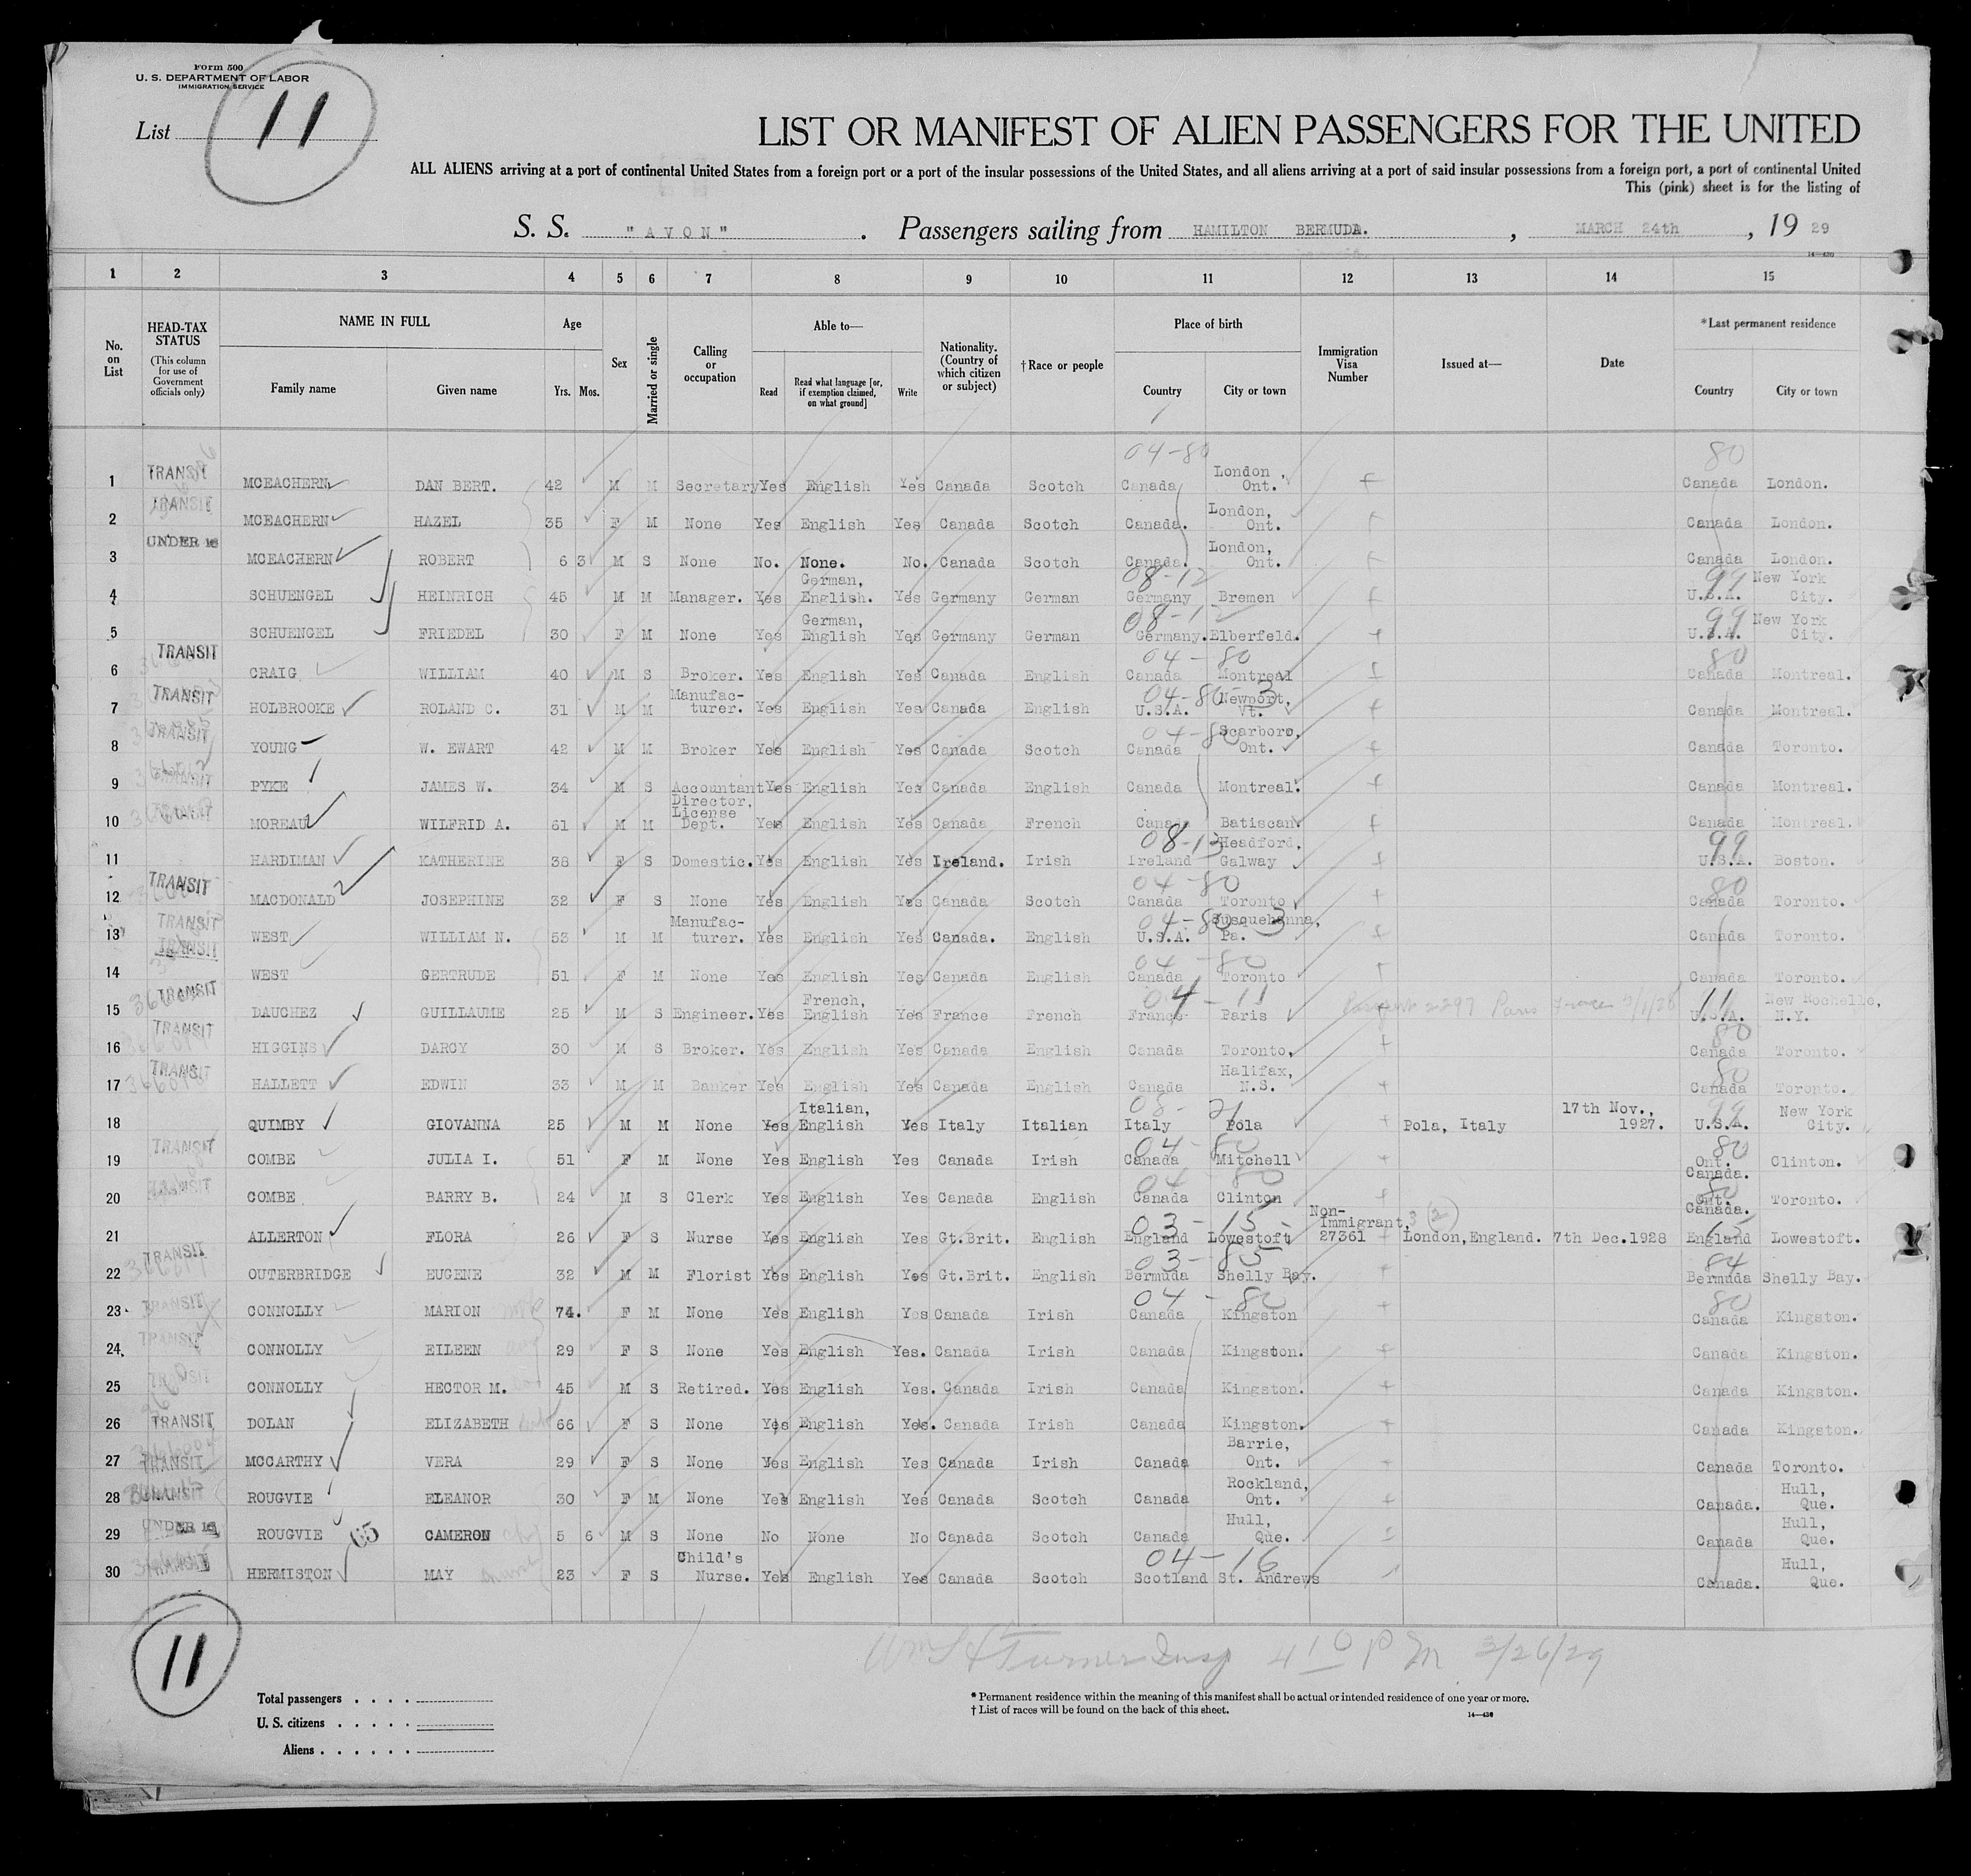 Form 500
U. S. DEPARTMENT OF LABOR
IMMIGRATION SERVICE
List 11
LIST OR MANIFEST OF ALIEN PASSENGERS FOR THE UNITED
ALL ALIENS arriving at a port of continental United States from a foreign port or a port of the insular possessions of the United States, and all aliens arriving at a port of said insular possessions from a foreign port, a port of continental United
This (pink) sheet is for the listing of
S. S. "AVON" . Passengers sailing from HAMILTON BERMUDA. , MARCH 24th , 19 29
14—430
1 2 3 4 5 6 7 8 9 10 11 12 13 14 15
No. on List
HEAD-TAX STATUS (This column for use of Government officials only)
NAME IN FULL Family name Given name
Age Yrs. Mos.
Sex
Married or single
Calling or occupation
Able to— Read Read what language [or, if exemption claimed, on what ground] Write
Nationality. (Country of which citizen or subject)
†Race or people
Place of birth Country City or town
Immigration Visa Number
Issued at—
Date
*Last permanent residence Country City or town
04-80 80
1 TRANSIT MCEACHERN DAN BERT. 42 M M Secretary Yes English Yes Canada Scotch Canada London, Ont. Canada London.
2 TRANSIT MCEACHERN HAZEL 35 F M None Yes English Yes Canada Scotch Canada. London, Ont. Canada London.
3 UNDER 16 MCEACHERN ROBERT 6 3 M S None No. None. No. Canada Scotch Canada. London, Ont. Canada London.
4 SCHUENGEL HEINRICH 45 M M Manager. Yes German, English. Yes Germany German 08-12 Germany Bremen 99 U.S.A. New York City.
5 SCHUENGEL FRIEDEL 30 F M None Yes German, English Yes Germany German 08-12 Germany. Elberfeld. 99 U.S.A. New York City.
6 TRANSIT CRAIG WILLIAM 40 M S Broker. Yes English Yes Canada English 04-80 Canada Montreal 80 Canada Montreal.
7 TRANSIT HOLBROOKE ROLAND C. 31 M M Manufac- turer. Yes English Yes Canada English 04-80-3 U.S.A. Newport, Vt. Canada Montreal.
8 TRANSIT YOUNG W. EWART 42 M M Broker Yes English Yes Canada Scotch 04-80 Canada Scarboro, Ont. Canada Toronto.
9 TRANSIT PYKE JAMES W. 34 M S Accountant Yes English Yes Canada English Canada Montreal. Canada Montreal.
10 TRANSIT MOREAU WILFRID A. 61 M M Director, License Dept. Yes English Yes Canada French Canada Batiscan. Canada Montreal.
11 HARDIMAN KATHERINE 38 F S Domestic. Yes English Yes Ireland. Irish 08-13 Ireland Headford, Galway 99 U.S.A. Boston.
12 TRANSIT MACDONALD JOSEPHINE 32 F S None Yes English Yes Canada Scotch 04-80 Canada Toronto 80 Canada Toronto.
13 TRANSIT WEST WILLIAM N. 53 M M Manufac- turer. Yes English Yes Canada. English 04-80-3 U.S.A. Susquehanna, Pa. Canada Toronto.
14 TRANSIT WEST GERTRUDE 51 F M None Yes English Yes Canada English 04-80 Canada Toronto Canada Toronto.
15 TRANSIT DAUCHEZ GUILLAUME 25 M S Engineer. Yes French, English Yes France French 04-11 France Paris Paris France 11 U.S.A. New Rochelle, N.Y.
16 TRANSIT HIGGINS DARCY 30 M S Broker. Yes English Yes Canada English Canada Toronto, 80 Canada Toronto.
17 TRANSIT HALLETT EDWIN 33 M M Banker Yes English Yes Canada English Canada Halifax, N.S. 80 Canada Toronto.
18 QUIMBY GIOVANNA 25 M M None Yes Italian, English Yes Italy Italian 08-21 Italy Pola Pola, Italy 17th Nov., 1927. 99 U.S.A. New York City.
19 TRANSIT COMBE JULIA I. 51 F M None Yes English Yes Canada Irish 04-80 Canada Mitchell 80 Ont. Canada. Clinton.
20 TRANSIT COMBE BARRY B. 24 M S Clerk Yes English Yes Canada English 04-80 Canada Clinton 80 Ont. Canada. Toronto.
21 ALLERTON FLORA 26 F S Nurse Yes English Yes Gt.Brit. English 03-15- England Lowestoft Non- Immigrant, 27361 3 (2) London, England. 7th Dec.1928 15 England Lowestoft.
22 TRANSIT OUTERBRIDGE EUGENE 32 M M Florist Yes English Yes Gt.Brit. English 03-85 Bermuda Shelly Bay. 84 Bermuda Shelly Bay.
23 TRANSIT CONNOLLY MARION 74. F M None Yes English Yes Canada Irish 04-80 Canada Kingston 80 Canada Kingston.
24 TRANSIT CONNOLLY EILEEN 29 F S None Yes English Yes. Canada Irish Canada Kingston. Canada Kingston.
25 TRANSIT CONNOLLY HECTOR M. 45 M S Retired. Yes English Yes. Canada Irish Canada Kingston. Canada Kingston.
26 TRANSIT DOLAN ELIZABETH 66 F S None Yes English Yes. Canada Irish Canada Kingston. Canada Kingston.
27 TRANSIT MCCARTHY VERA 29 F S None Yes English Yes Canada Irish Canada Barrie, Ont. Canada Toronto.
28 TRANSIT ROUGVIE ELEANOR 30 F M None Yes English Yes Canada Scotch Canada Rockland, Ont. Canada. Hull, Que.
29 UNDER 16 ROUGVIE CAMERON 5 6 M S None No None No Canada Scotch Canada Hull, Que. Canada Hull, Que.
30 TRANSIT HERMISTON MAY 23 F S Child's Nurse. Yes English Yes Canada Scotch 04-16 Scotland St. Andrews Canada. Hull, Que.
11
Turner Insp 4 10 PM 3/26/29
Total passengers . . . .
U. S. citizens . . . . .
Aliens . . . . . .
* Permanent residence within the meaning of this manifest shall be actual or intended residence of one year or more.
† List of races will be found on the back of this sheet.
14—430